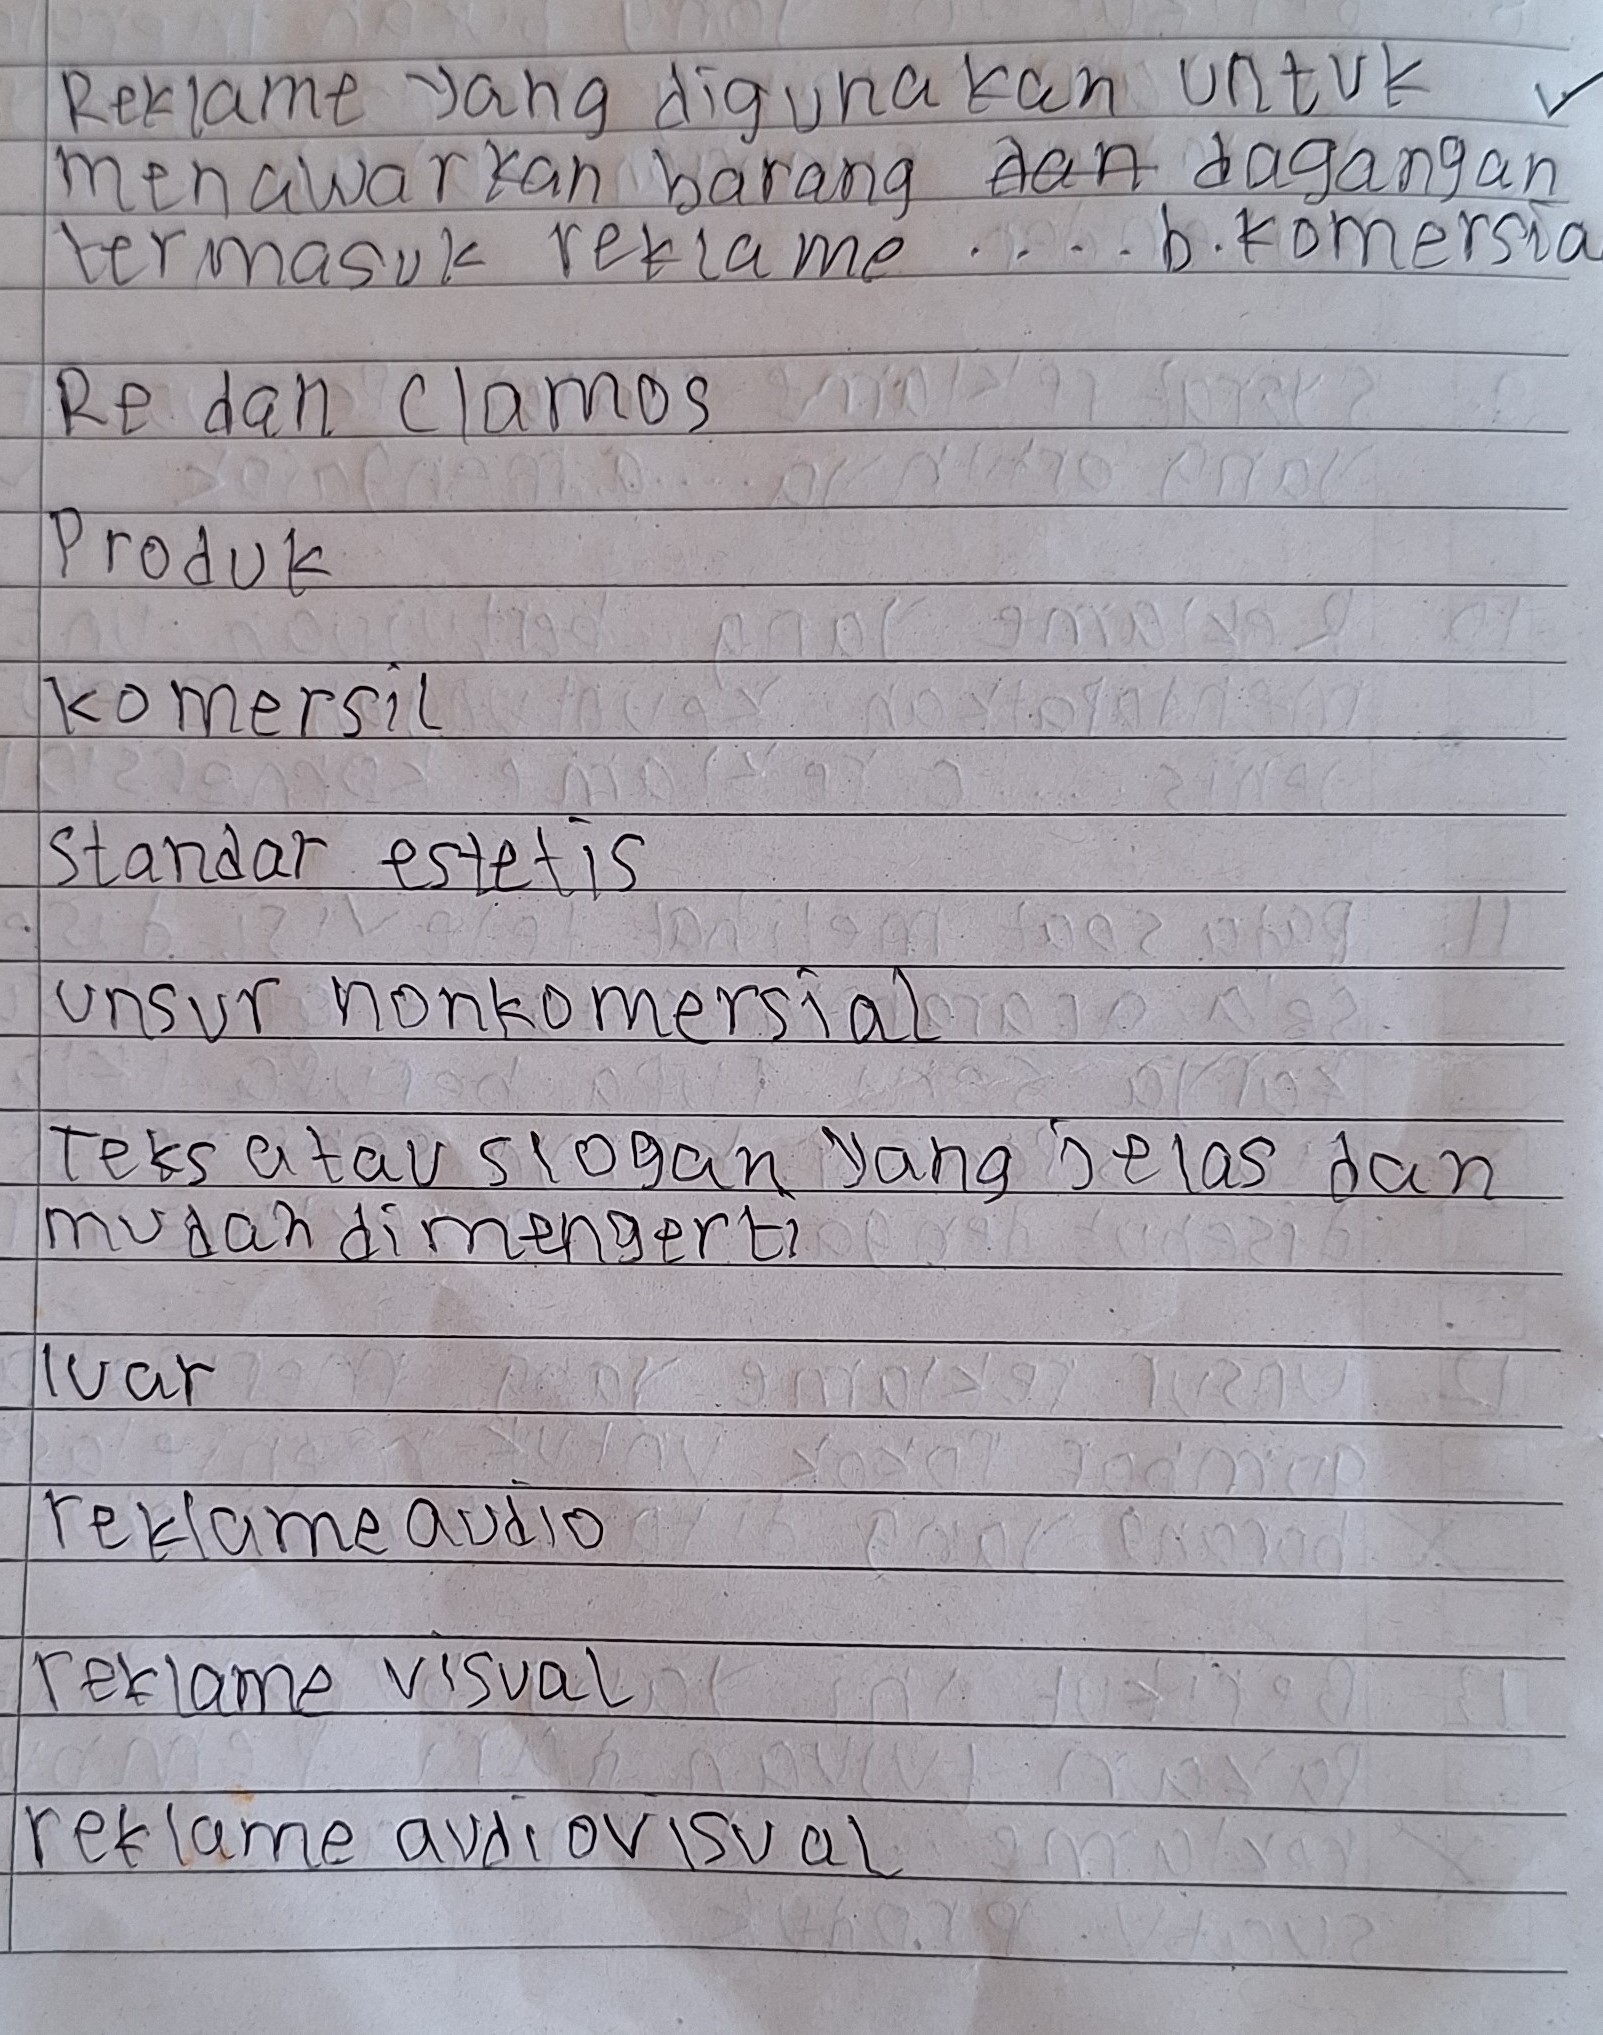 Reklame yang digunakan untuk ✓
menawarkan barang dan dagangan
termasuk reklame .... b. komersia
Re dan Clamos
Produk
komersil
standar estetis
unsur nonkomersial
Teks atau slogan yang jelas dan
mudah dimengerti
luar
reklame audio
reklame visual
reklame audiovisual